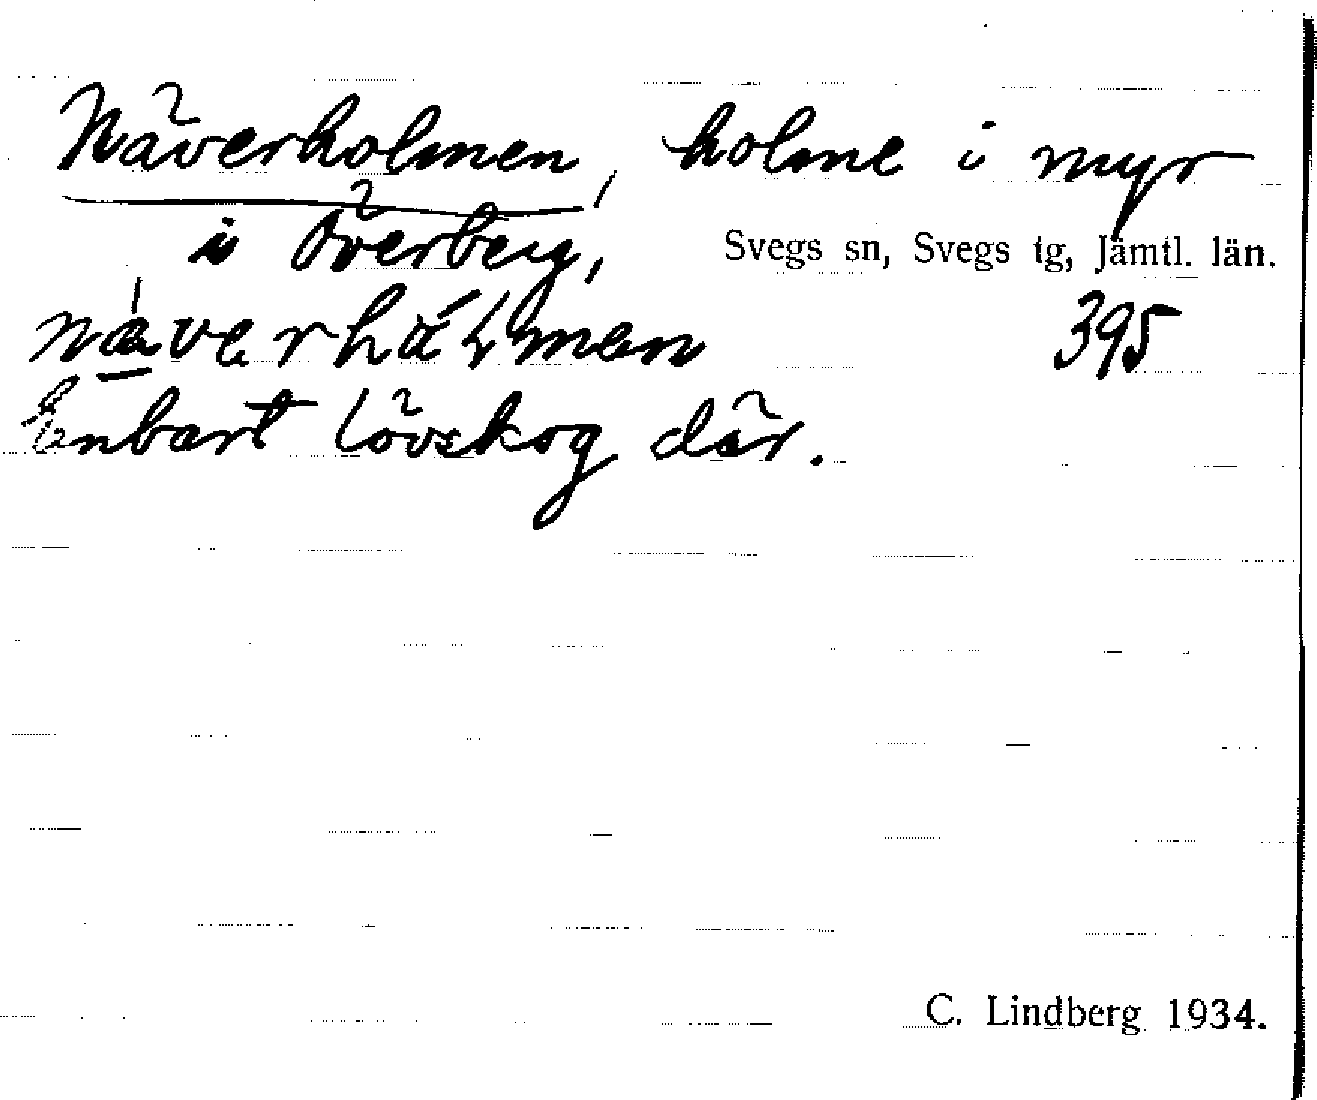 Näverholmen, holme i myr
i Överberg,
Svegs sn, Svegs tg, Jämtl. län.
395
Enbart lövskog där.
C. Lindberg 1934.